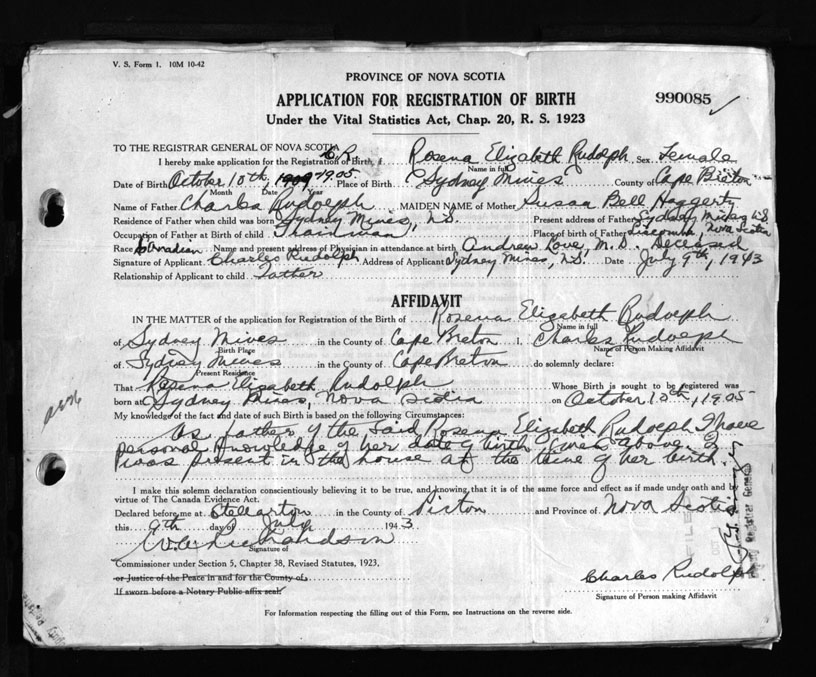 V. S. Form 1. 10M 10-42
PROVINCE OF NOVA SCOTIA
APPLICATION FOR REGISTRATION OF BIRTH
990085
Under the Vital Statistics Act, Chap. 20, R. S. 1923
TO THE REGISTRAR GENERAL OF NOVA SCOTIA
I hereby make application for the Registration of Birth, Rosena Elizabeth Rudolph Sex Female
Name in full
Date of Birth October 10th, 1909 1905. Place of Birth Sydney Mines County of Cape Breton
Month Date Year
Name of Father Charles Rudolph MAIDEN NAME of Mother Susan Bell Haggerty
Residence of Father when child was born Sydney Mines, N.S. Present address of Father Sydney Mines N.S.
Occupation of Father at Birth of child Place of birth of Father Liscomb, Nova Scotia
Race Canadian Name and present address of Physician in attendance at birth Andrew Love, M.D. Deceased
Signature of Applicant Charles Rudolph Address of Applicant Sydney Mines, N.S. Date July 9th, 1943
Relationship of Applicant to child Father
AFFIDAVIT
IN THE MATTER of the application for Registration of the Birth of Rosena Elizabeth Rudolph
Name in full
of Sydney Mines in the County of Cape Breton I, Charles Rudolph
Birth Place Name of Person Making Affidavit
of Sydney Mines in the County of Cape Breton do solemnly declare:
Present Residence
That Rosena Elizabeth Rudolph Whose Birth is sought to be registered was
born at Sydney Mines, Nova Scotia on October 10th, 1905
My knowledge of the fact and date of such Birth is based on the following Circumstances:
As father of the said Rosena Elizabeth Rudolph I have
personal knowledge of her date of birth given above. I
was present in the house at the time of her birth.
I make this solemn declaration conscientiously believing it to be true, and knowing that it is of the same force and effect as if made under oath and by
virtue of The Canada Evidence Act.
Declared before me at Stellarton in the County of Pictou and Province of Nova Scotia
this 9th day of July 1943
Richardson
Signature of
Commissioner under Section 5, Chapter 38, Revised Statutes, 1923,
or Justice of the Peace in and for the County of
If sworn before a Notary Public affix seal
Charles Rudolph
Signature of Person making Affidavit
For Information respecting the filling out of this Form, see Instructions on the reverse side.
Registrar General